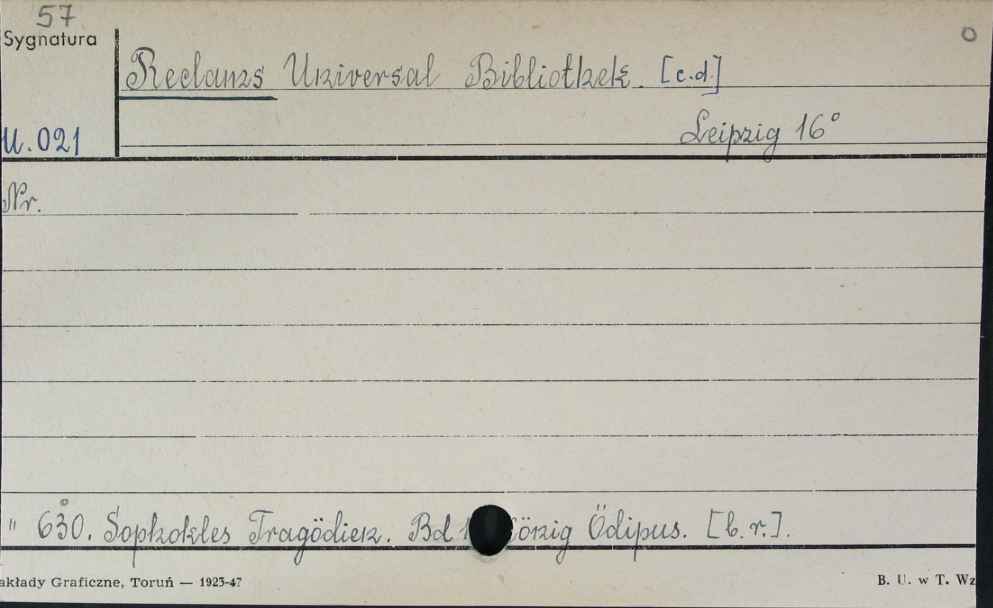 57
Sygnatura
Reclams Universal Bibliothek. [c.d.]
U. 021
Leipzig 16°
Nr.
" 630. Sophokles Tragödien. Bd. Ödipus. [b.r.].
akłady Graficzne, Toruń — 1923-47
B. U. w T. Wz